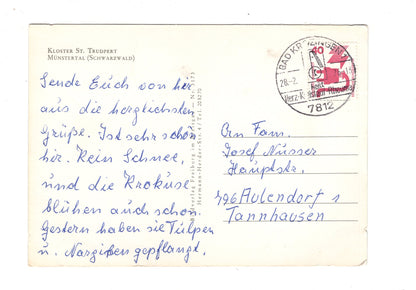 KLOSTER ST. TRUDPERT
MÜNSTERTAL (SCHWARZWALD)
Sende Euch von hier
aus die herzlichsten
Grüße. Ist sehr schön
hir. Kein Schnee,
und die Krokuse
blühen auch schon.
Gestern haben sie Tulpen
u. Nargißen gepflanzt.
BAD KROZINGEN
28.-2.
7812
60
An Fam.
Josef Nusser
Hauptstr.
796 Aulendorf 1
Tannhausen